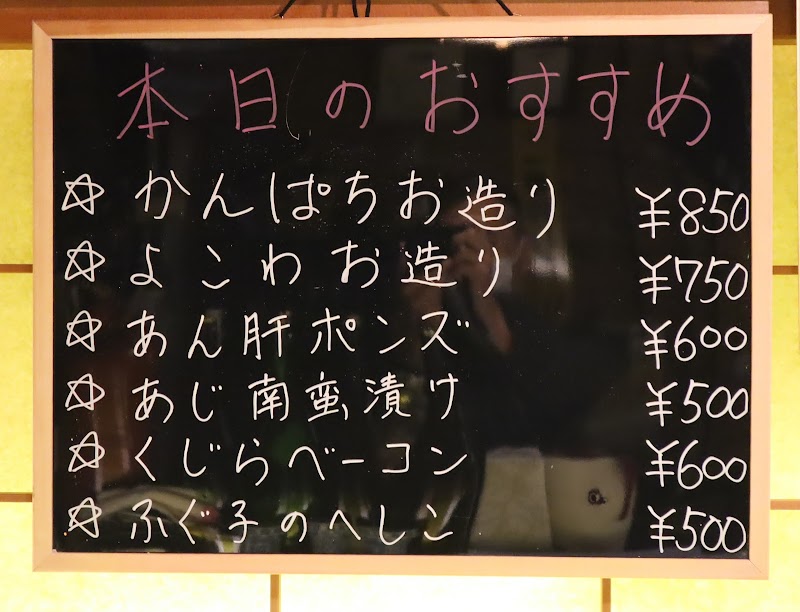 本日のおすすめ
☆ かんぱちお造り ¥850
☆ よこわお造り ¥750
☆ あん肝ポンズ ¥600
☆ あじ南蛮漬け ¥500
☆ くじらベーコン ¥600
☆ ふぐ子のへしこ ¥500